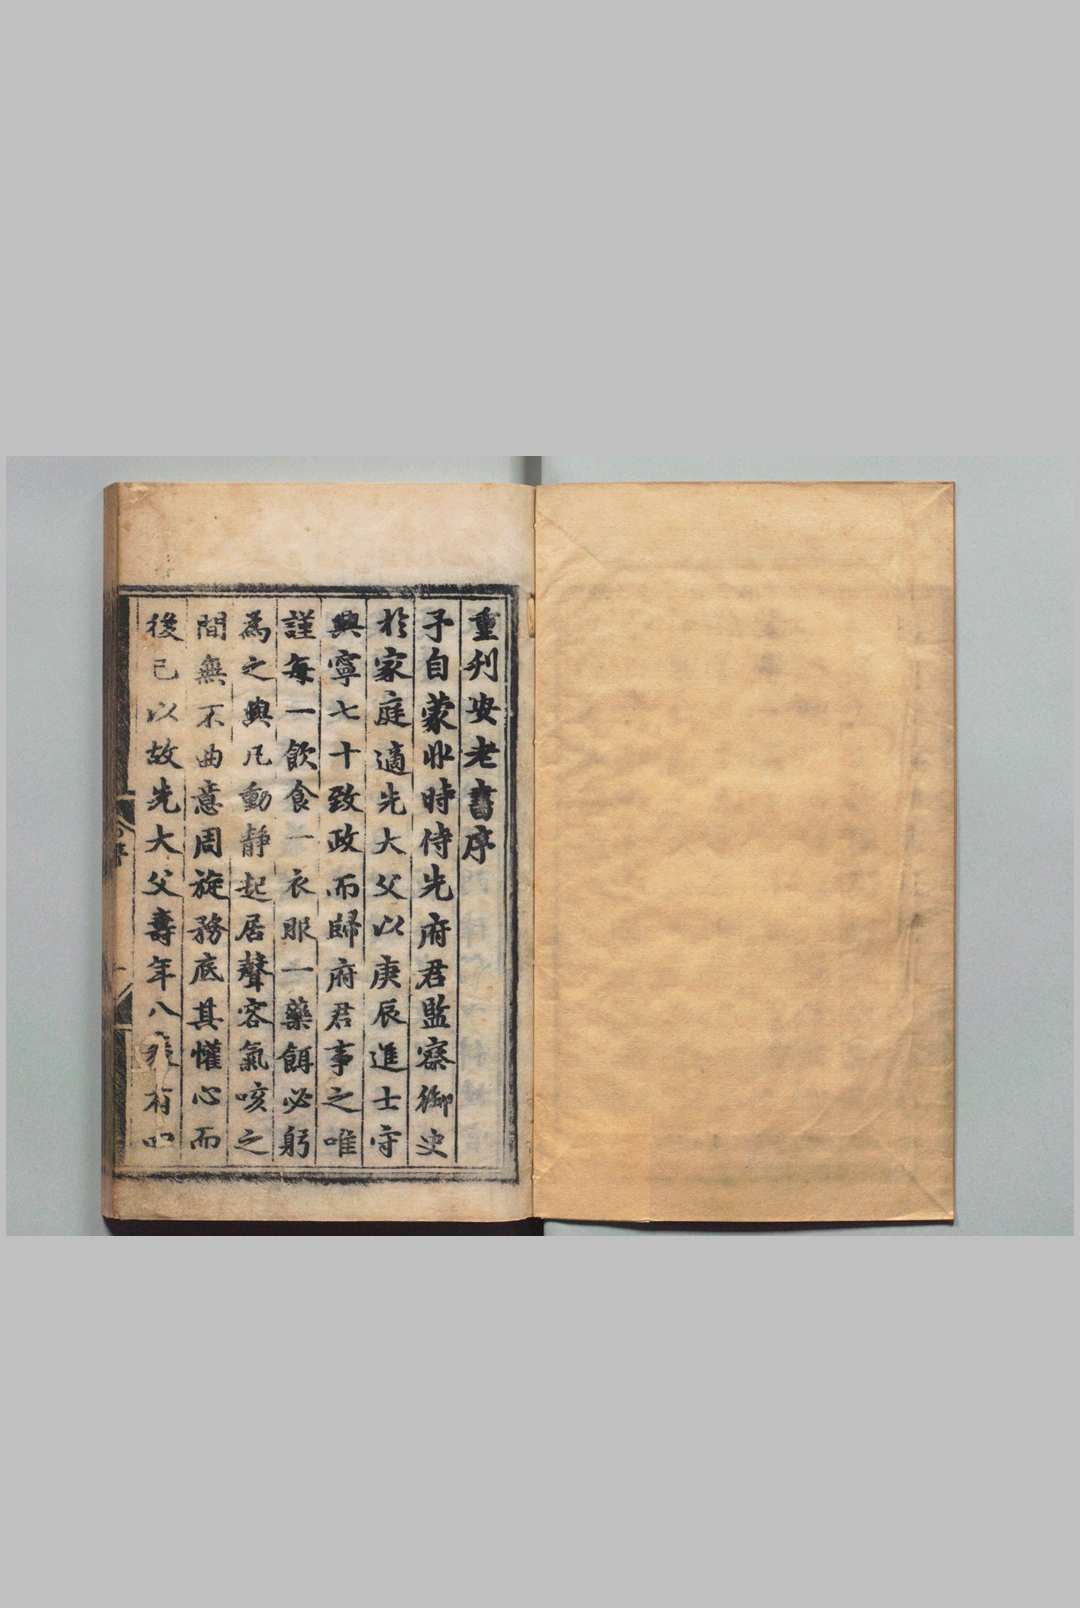 重刋安老書序
予自蒙丱時侍先府君監察御史
於家庭適先大父以庚辰進士守
興寧七十致政而歸府君事之唯
謹每一飲食一衣服一藥餌必躬
為之與凡動靜起居聲容氣咳之
間無不曲意周旋務底其懽心而
後已以故先大父壽年八
序